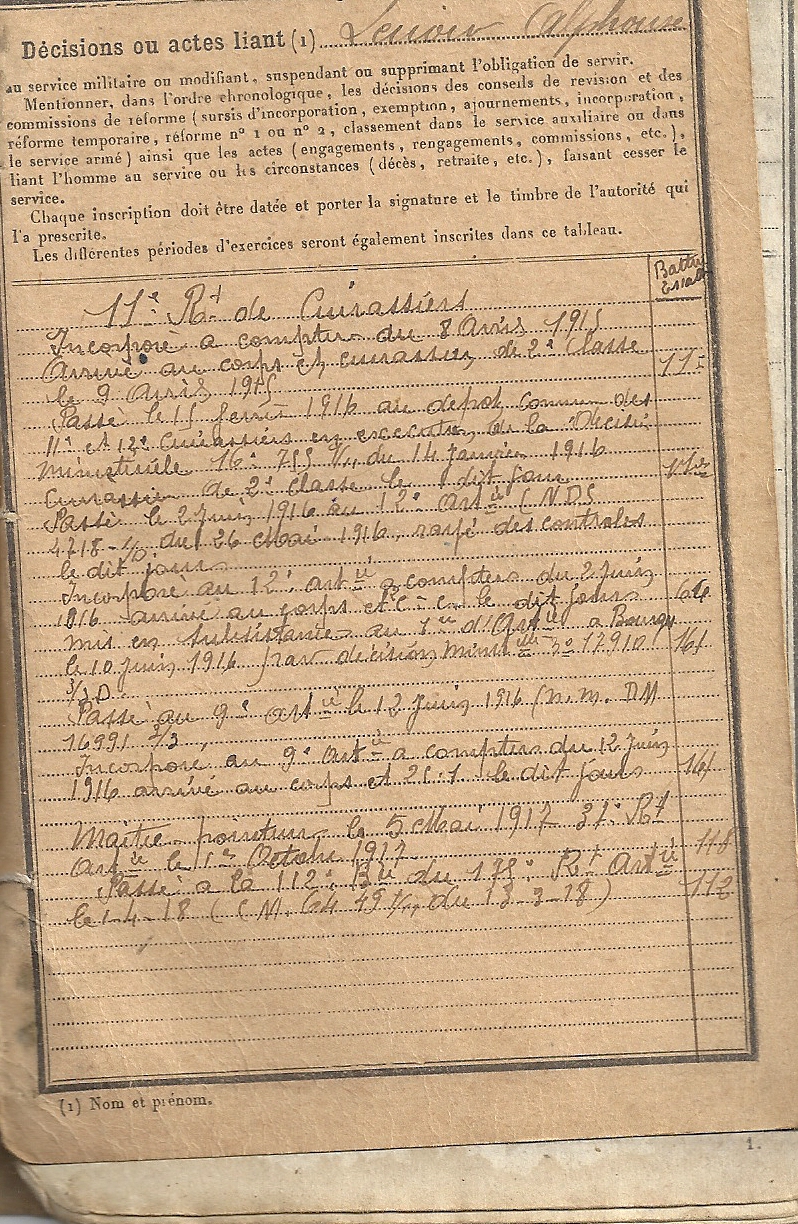 Décisions ou actes liant (1) Alphonse
au service militaire ou modifiant, suspendant ou supprimant l'obligation de servir.
Mentionner, dans l'ordre chronologique, les décisions des conseils de revision et des
commissions de réforme (sursis d'incorporation, exemption, ajournements, incorporation,
réforme temporaire, réforme n° 1 ou n° 2, classement dans le service auxiliaire ou dans
le service armé) ainsi que les actes (engagements, rengagements, commissions, etc.),
liant l'homme au service ou les circonstances (décès, retraite, etc.), faisant cesser le
service.
Chaque inscription doit être datée et porter la signature et le timbre de l'autorité qui
l'a prescrite.
Les différentes périodes d'exercices seront également inscrites dans ce tableau.
11e Rt de Cuirassiers
Incorporé a compter du 8 Avril 1915
Arrivé au corps et cuirassier de 2e Classe
le 9 Avril 1915
Passé le 15 fevrier 1916 au depot commun des
11e et 12e Cuirassiers en execution de la Decision
ministerielle 755 du 14 janvier 1916
Cuirassier de 2e Classe le dit jour
Passé le 2 Juin 1916 au 12e Artie
4718 du 26 Mai 1916, rayé des controles
le dit jour
Incorporé au 12e artie a compter du 2 juin
1916 arrivé au corps et le dit jour
mis en Subsistance au 1er d'Artie a Bourges
le 10 juin 1916 par decision minielle no 17910
3/1 D.
Passé au 9e artie le 12 Juin 1916 (n. m. DM
16991 2/3
Incorporé au 9e Artie a compter du 12 juin
1916 arrivé au corps et le dit jour
Maitre pointeur le 5 Mai 1917 37e Rt
Artie le 1er Octobre 1917
Passé a la 112e Bie du 175e Rt Artie
le 1-4-18 (du 13-3-18)
118
112
(1) Nom et prénom.
1.